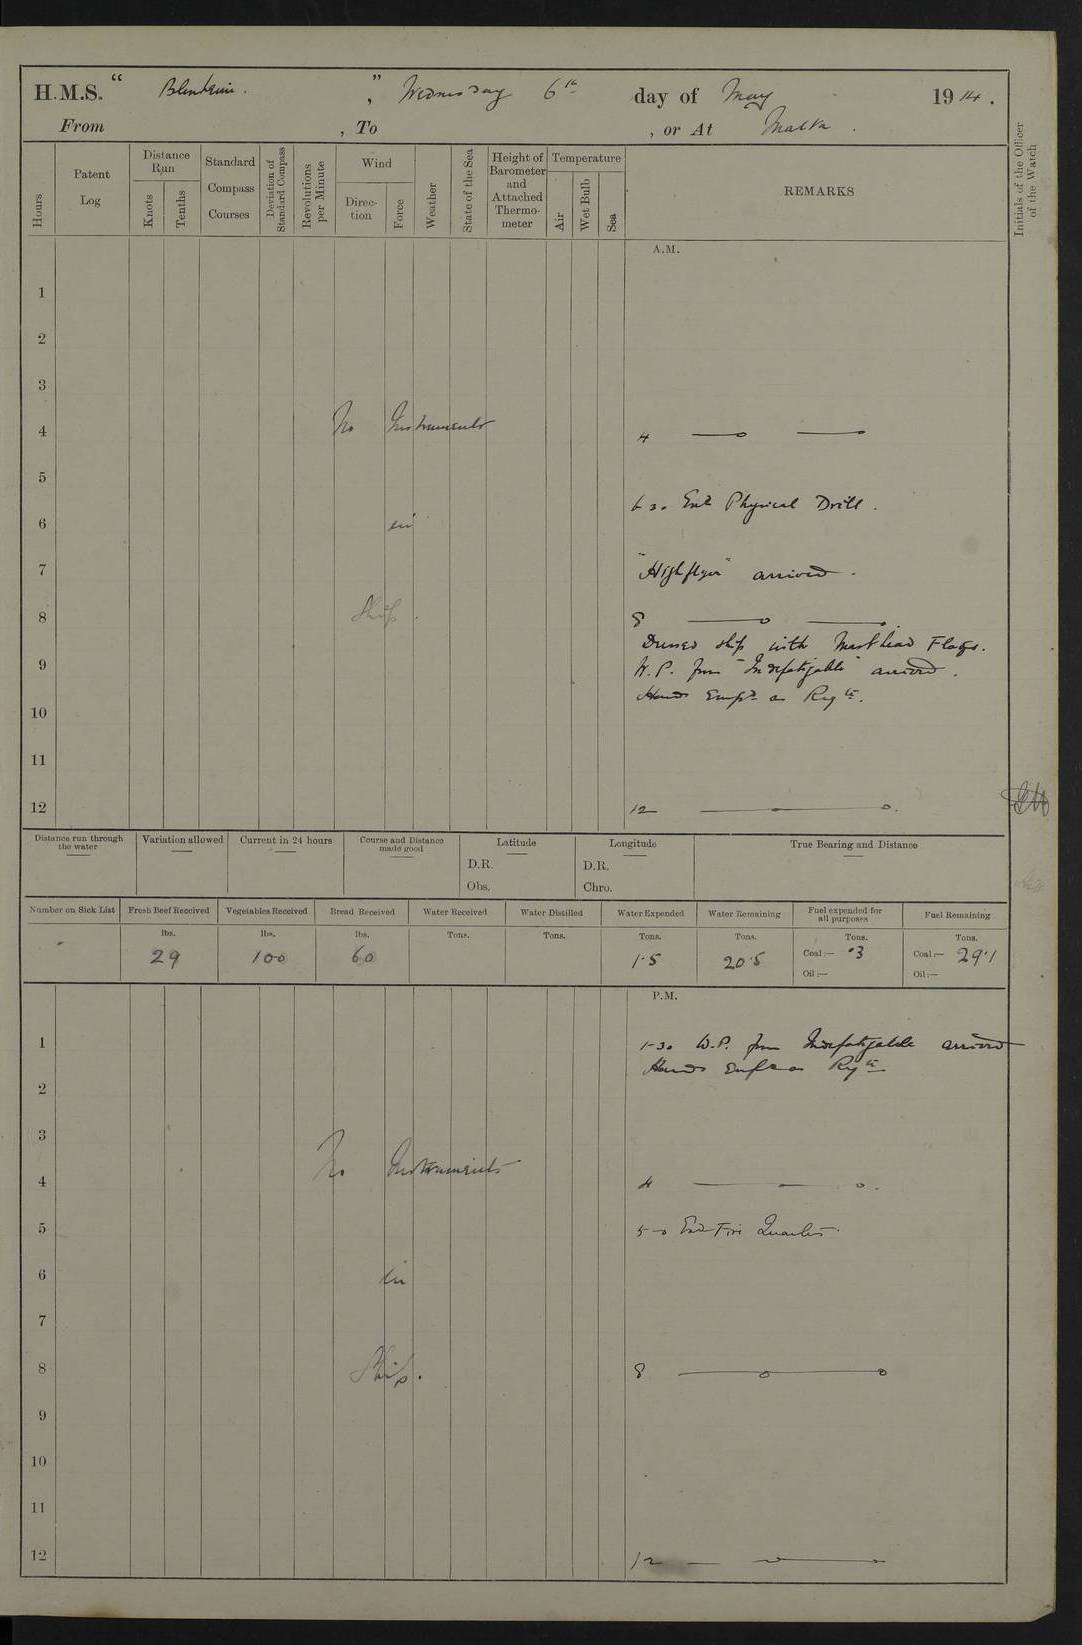 H.M.S. " Blenheim. ", Wednesday 6th day of May 1914.
From , To , or At Malta.
Hours
Patent Log
Distance Run
Knots
Tenths
Standard Compass Courses
Deviation of Standard Compass
Revolutions per Minute
Wind
Direction
Force
Weather
State of the Sea
Height of Barometer and Attached Thermometer
Temperature
Air
Wet Bulb
Sea
REMARKS
Initials of the Officer of the Watch
A.M.
1
2
3
4 No Instruments 4
5
6 30 Exd Physical Drill.
6 in
7 "Highflyer" arrived.
8 Ship. 8
Dressed ship with Masthead Flags.
9 W.P. from "Indefatigable" arrived.
Hands Empd as Reqte.
10
11
12 12
Distance run through the water
Variation allowed
Current in 24 hours
Course and Distance made good
Latitude
D.R.
Obs.
Longitude
D.R.
Chro.
True Bearing and Distance
Number on Sick List
Fresh Beef Received
Vegetables Received
Bread Received
Water Received
Water Distilled
Water Expended
Water Remaining
Fuel expended for all purposes
Fuel Remaining
lbs. lbs. lbs. Tons. Tons. Tons. Tons. Tons. Tons.
29 100 60 1.5 20.5 Coal:— .3 Coal:— 29.1
Oil:— Oil:—
P.M.
1 1-30 W.P. from Indefatigable arrived
Hands Empd as Reqte
2
3
No Instruments
4 4
5 5-0 Exd Fire Quarters.
6 in
7
8 Ship. 8
9
10
11
12 12